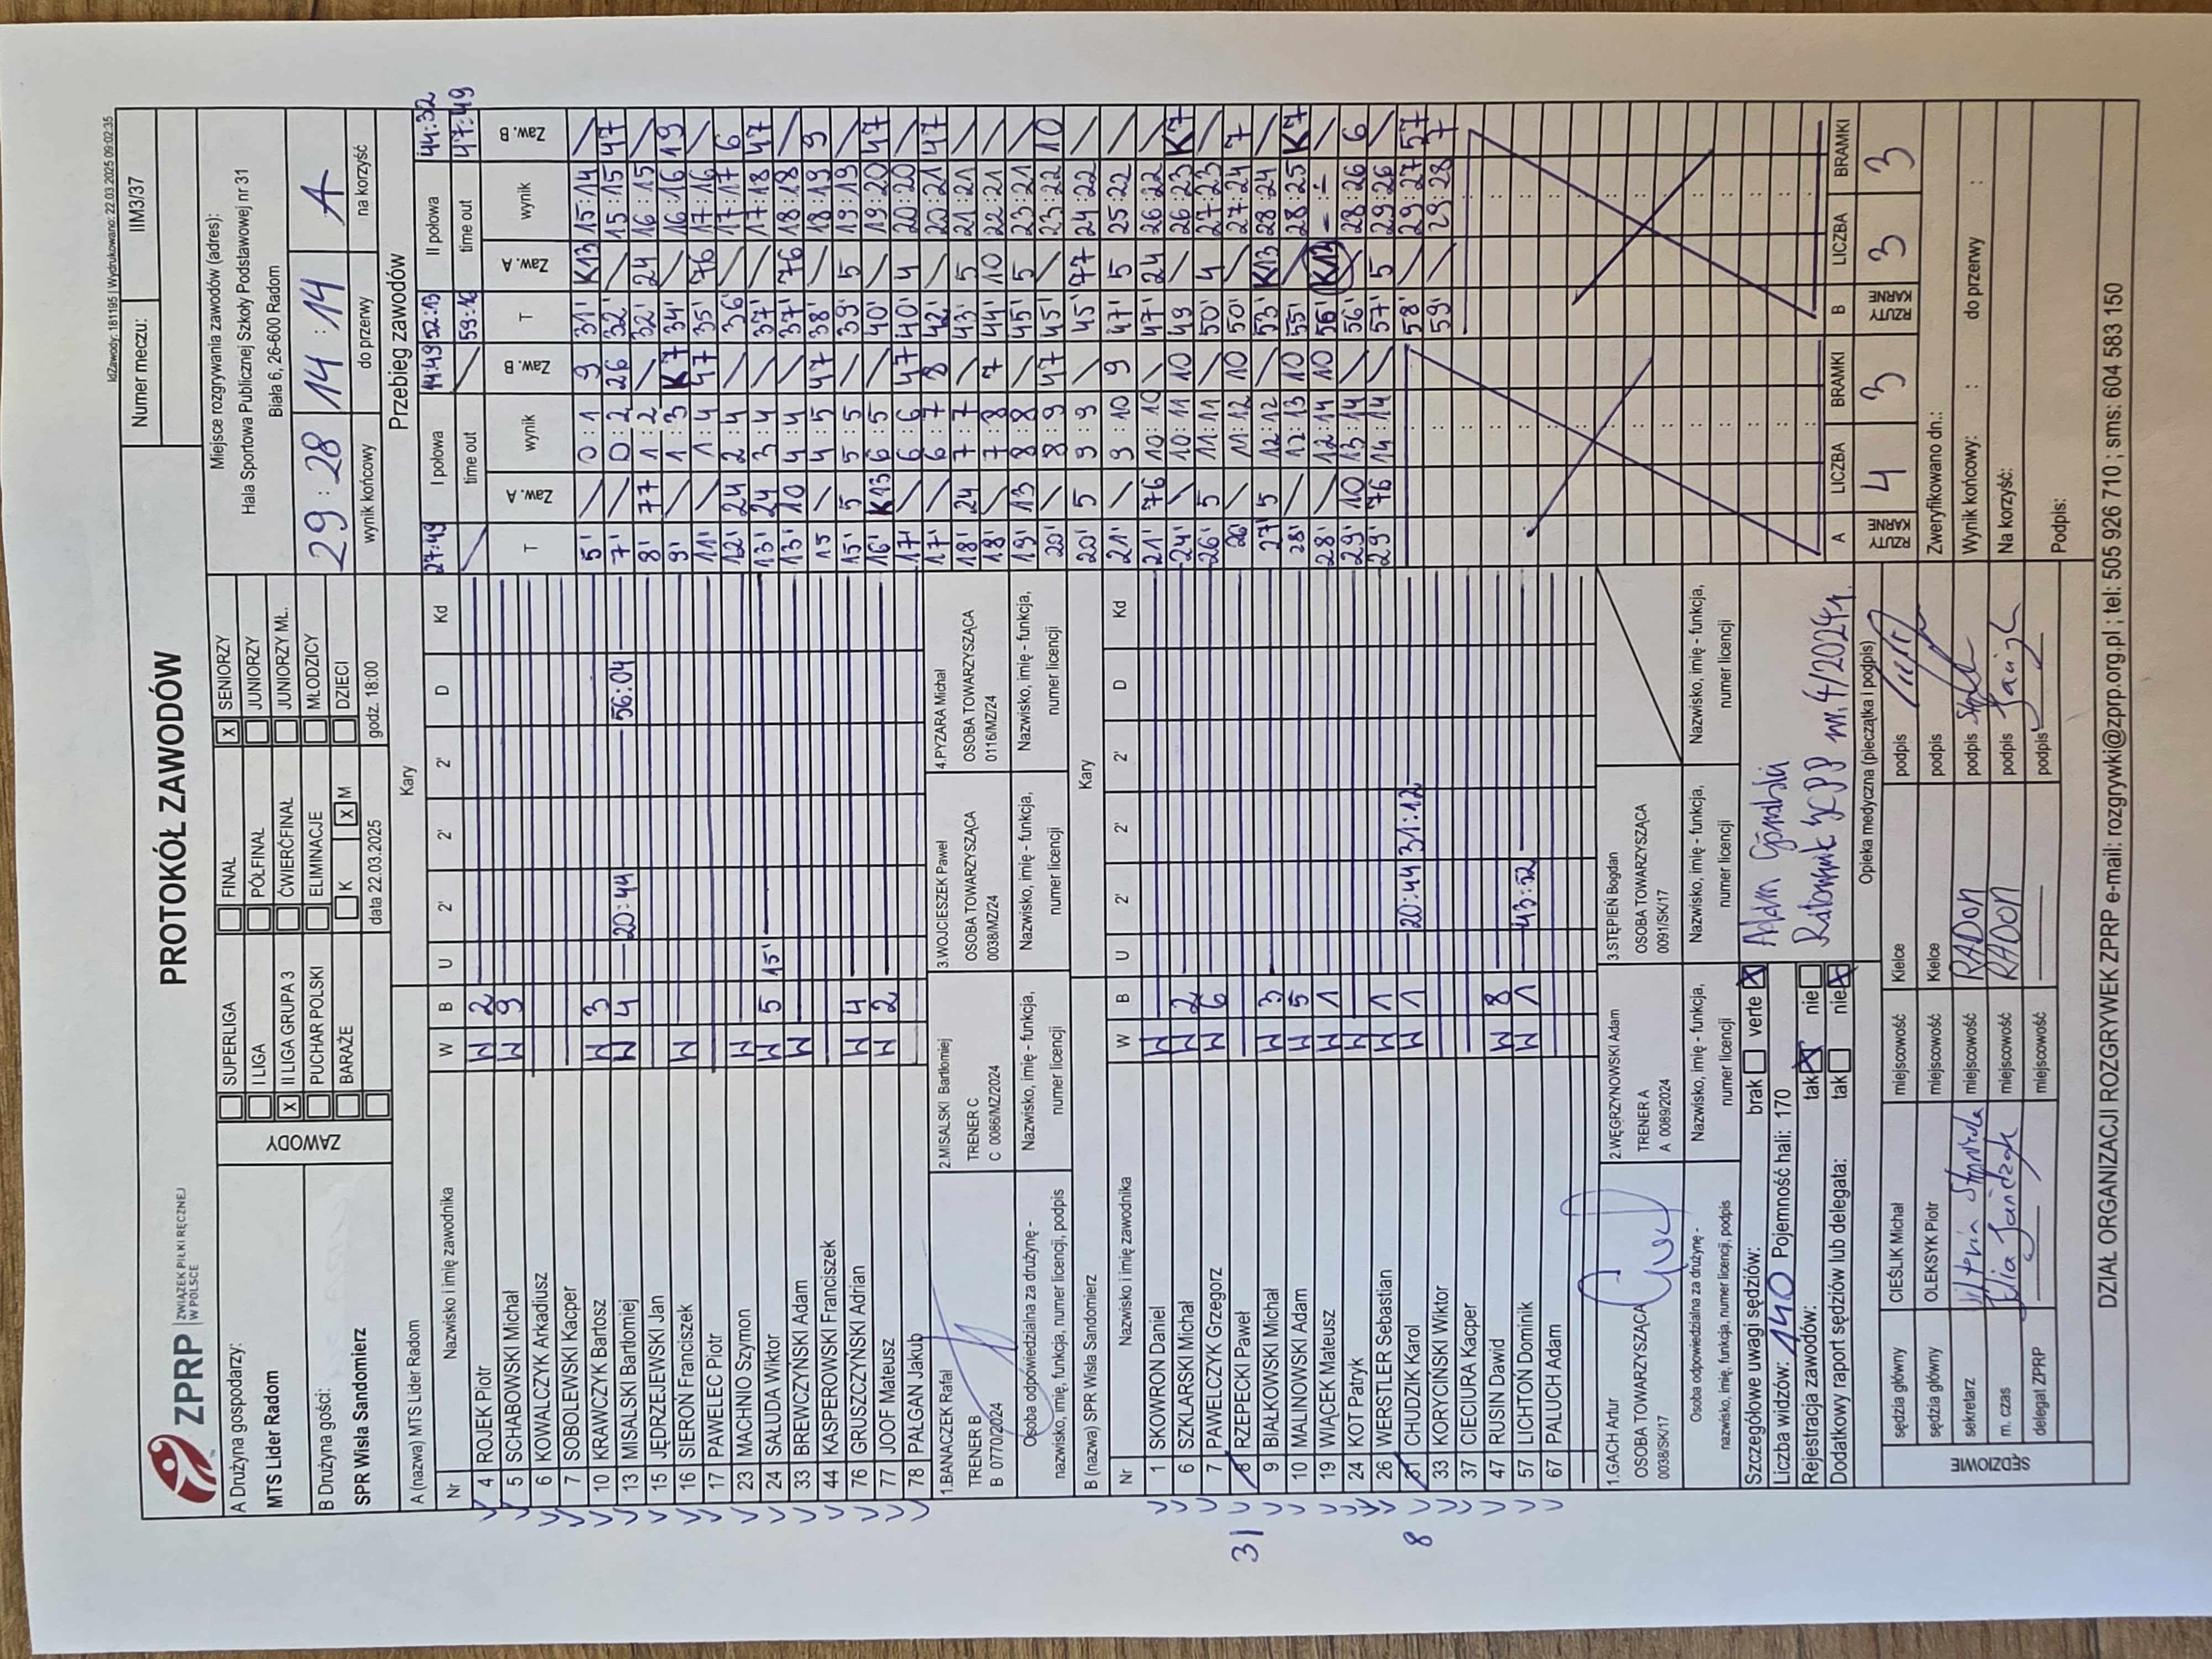 IdZawody: 181195 | Wydrukowano: 22.03.2025 09:02:35
ZPRP ZWIĄZEK PIŁKI RĘCZNEJ W POLSCE
PROTOKÓŁ ZAWODÓW
Numer meczu: IIM3/37
A Drużyna gospodarzy:
MTS Lider Radom
B Drużyna gości:
SPR Wisła Sandomierz
ZAWODY
SUPERLIGA FINAŁ X SENIORZY
I LIGA PÓŁFINAŁ JUNIORZY
X II LIGA GRUPA 3 ĆWIERĆFINAŁ JUNIORZY MŁ.
PUCHAR POLSKI ELIMINACJE MŁODZICY
BARAŻE K X M DZIECI
data 22.03.2025 godz. 18:00
Miejsce rozgrywania zawodów (adres):
Hala Sportowa Publicznej Szkoły Podstawowej nr 31
Biała 6, 26-600 Radom
29 : 28 14 : 14 A
wynik końcowy do przerwy na korzyść
A (nazwa) MTS Lider Radom Kary
Nr Nazwisko i imię zawodnika W B U 2' 2' 2' D Kd
4 ROJEK Piotr W 2
5 SCHABOWSKI Michał W 9
6 KOWALCZYK Arkadiusz
7 SOBOLEWSKI Kacper
10 KRAWCZYK Bartosz W 3
13 MISALSKI Bartłomiej W 4 20:44 56:04
15 JĘDRZEJEWSKI Jan
16 SIEROŃ Franciszek W
17 PAWELEC Piotr
23 MACHNIO Szymon W
24 SAŁUDA Wiktor W 5 15'
33 BREWCZYŃSKI Adam W
44 KASPEROWSKI Franciszek
76 GRUSZCZYŃSKI Adrian W 4
77 JOOF Mateusz W 2
78 PAŁGAN Jakub
1.BANACZEK Rafał
TRENER B
B 0770/2024
2.MISALSKI Bartłomiej
TRENER C
C 0086/MZ/2024
3.WOJCIESZEK Paweł
OSOBA TOWARZYSZĄCA
0038/MZ/24
4.PYZARA Michał
OSOBA TOWARZYSZĄCA
0116/MZ/24
Osoba odpowiedzialna za drużynę -
nazwisko, imię, funkcja, numer licencji, podpis
Nazwisko, imię - funkcja,
numer licencji
Nazwisko, imię - funkcja,
numer licencji
Nazwisko, imię - funkcja,
numer licencji
B (nazwa) SPR Wisła Sandomierz Kary
Nr Nazwisko i imię zawodnika W B U 2' 2' 2' D Kd
1 SKOWRON Daniel W
6 SZKLARSKI Michał W 2
7 PAWELCZYK Grzegorz W 6
31 8 RZEPECKI Paweł
9 BIAŁKOWSKI Michał W 3
10 MALINOWSKI Adam W 5
19 WIĄCEK Mateusz W 1
24 KOT Patryk W
26 WERSTLER Sebastian W 1
8 31 CHUDZIK Karol W 1 20:44 31:12
33 KORYCIŃSKI Wiktor
37 CIECIURA Kacper
47 RUSIN Dawid W 8
57 LICHTON Dominik W 1 43:52
67 PALUCH Adam
1.GACH Artur
OSOBA TOWARZYSZĄCA
0038/SK/17
2.WĘGRZYNOWSKI Adam
TRENER A
A 0089/2024
3.STĘPIEŃ Bogdan
OSOBA TOWARZYSZĄCA
0091/SK/17
Osoba odpowiedzialna za drużynę -
nazwisko, imię, funkcja, numer licencji, podpis
Nazwisko, imię - funkcja,
numer licencji
Nazwisko, imię - funkcja,
numer licencji
Nazwisko, imię - funkcja,
numer licencji
Przebieg zawodów
27:49 I połowa 14:49 52:13 II połowa 44:32
time out 59:16 time out 47:49
T Zaw. A wynik Zaw. B T Zaw. A wynik Zaw. B
5' / 0:1 9 31' K13 15:14 /
7' / 0:2 26 32' / 15:15 47
8' 77 1:2 / 32' 24 16:15 /
9' / 1:3 K7 34' / 16:16 19
11' / 1:4 47 35' 76 17:16 /
12' 24 2:4 / 36' / 17:17 6
13' 24 3:4 / 37' / 17:18 47
13' 10 4:4 / 37' 76 18:18 /
15 / 4:5 47 38' / 18:19 9
15' 5 5:5 / 39' 5 19:19 /
16' K13 6:5 / 40' / 19:20 47
17' / 6:6 47 40' 4 20:20 /
17' / 6:7 8 42' / 20:21 47
18' 24 7:7 / 43' 5 21:21 /
18' / 7:8 7 44' 10 22:21 /
19' 13 8:8 / 45' 5 23:21 /
20' / 8:9 47 45' / 23:22 10
20' 5 9:9 / 45' 77 24:22 /
21' / 9:10 9 47' 5 25:22 /
21' 76 10:10 / 47' 24 26:22 /
24' / 10:11 10 49 / 26:23 K7
26' 5 11:11 / 50' 4 27:23 /
26' / 11:12 10 50' / 27:24 7
27' 5 12:12 / 53' K13 28:24 /
28' / 12:13 10 55' / 28:25 K7
28' / 12:14 10 56' K13 -:- /
29' 10 13:14 / 56' / 28:26 6
29' 76 14:14 / 57' 5 29:26 /
58' / 29:27 57
59' / 29:28 7
A LICZBA BRAMKI B LICZBA BRAMKI
RZUTY KARNE 4 3 RZUTY KARNE 3 3
Szczegółowe uwagi sędziów: brak verte X
Liczba widzów: 140 Pojemność hali: 170
Rejestracja zawodów: tak X nie
Dodatkowy raport sędziów lub delegata: tak nie X
Adam
Ratownik KPP nr 4/2024r.
Opieka medyczna (pieczątka i podpis)
SĘDZIOWIE
sędzia główny CIEŚLIK Michał miejscowość Kielce podpis
sędzia główny OLEKSYK Piotr miejscowość Kielce podpis
sekretarz miejscowość RADOM podpis
m. czas miejscowość RADOM podpis
delegat ZPRP miejscowość podpis
Zweryfikowano dn.:
Wynik końcowy: : do przerwy :
Na korzyść:
Podpis:
DZIAŁ ORGANIZACJI ROZGRYWEK ZPRP e-mail: rozgrywki@zprp.org.pl ; tel: 505 926 710 ; sms: 604 583 150